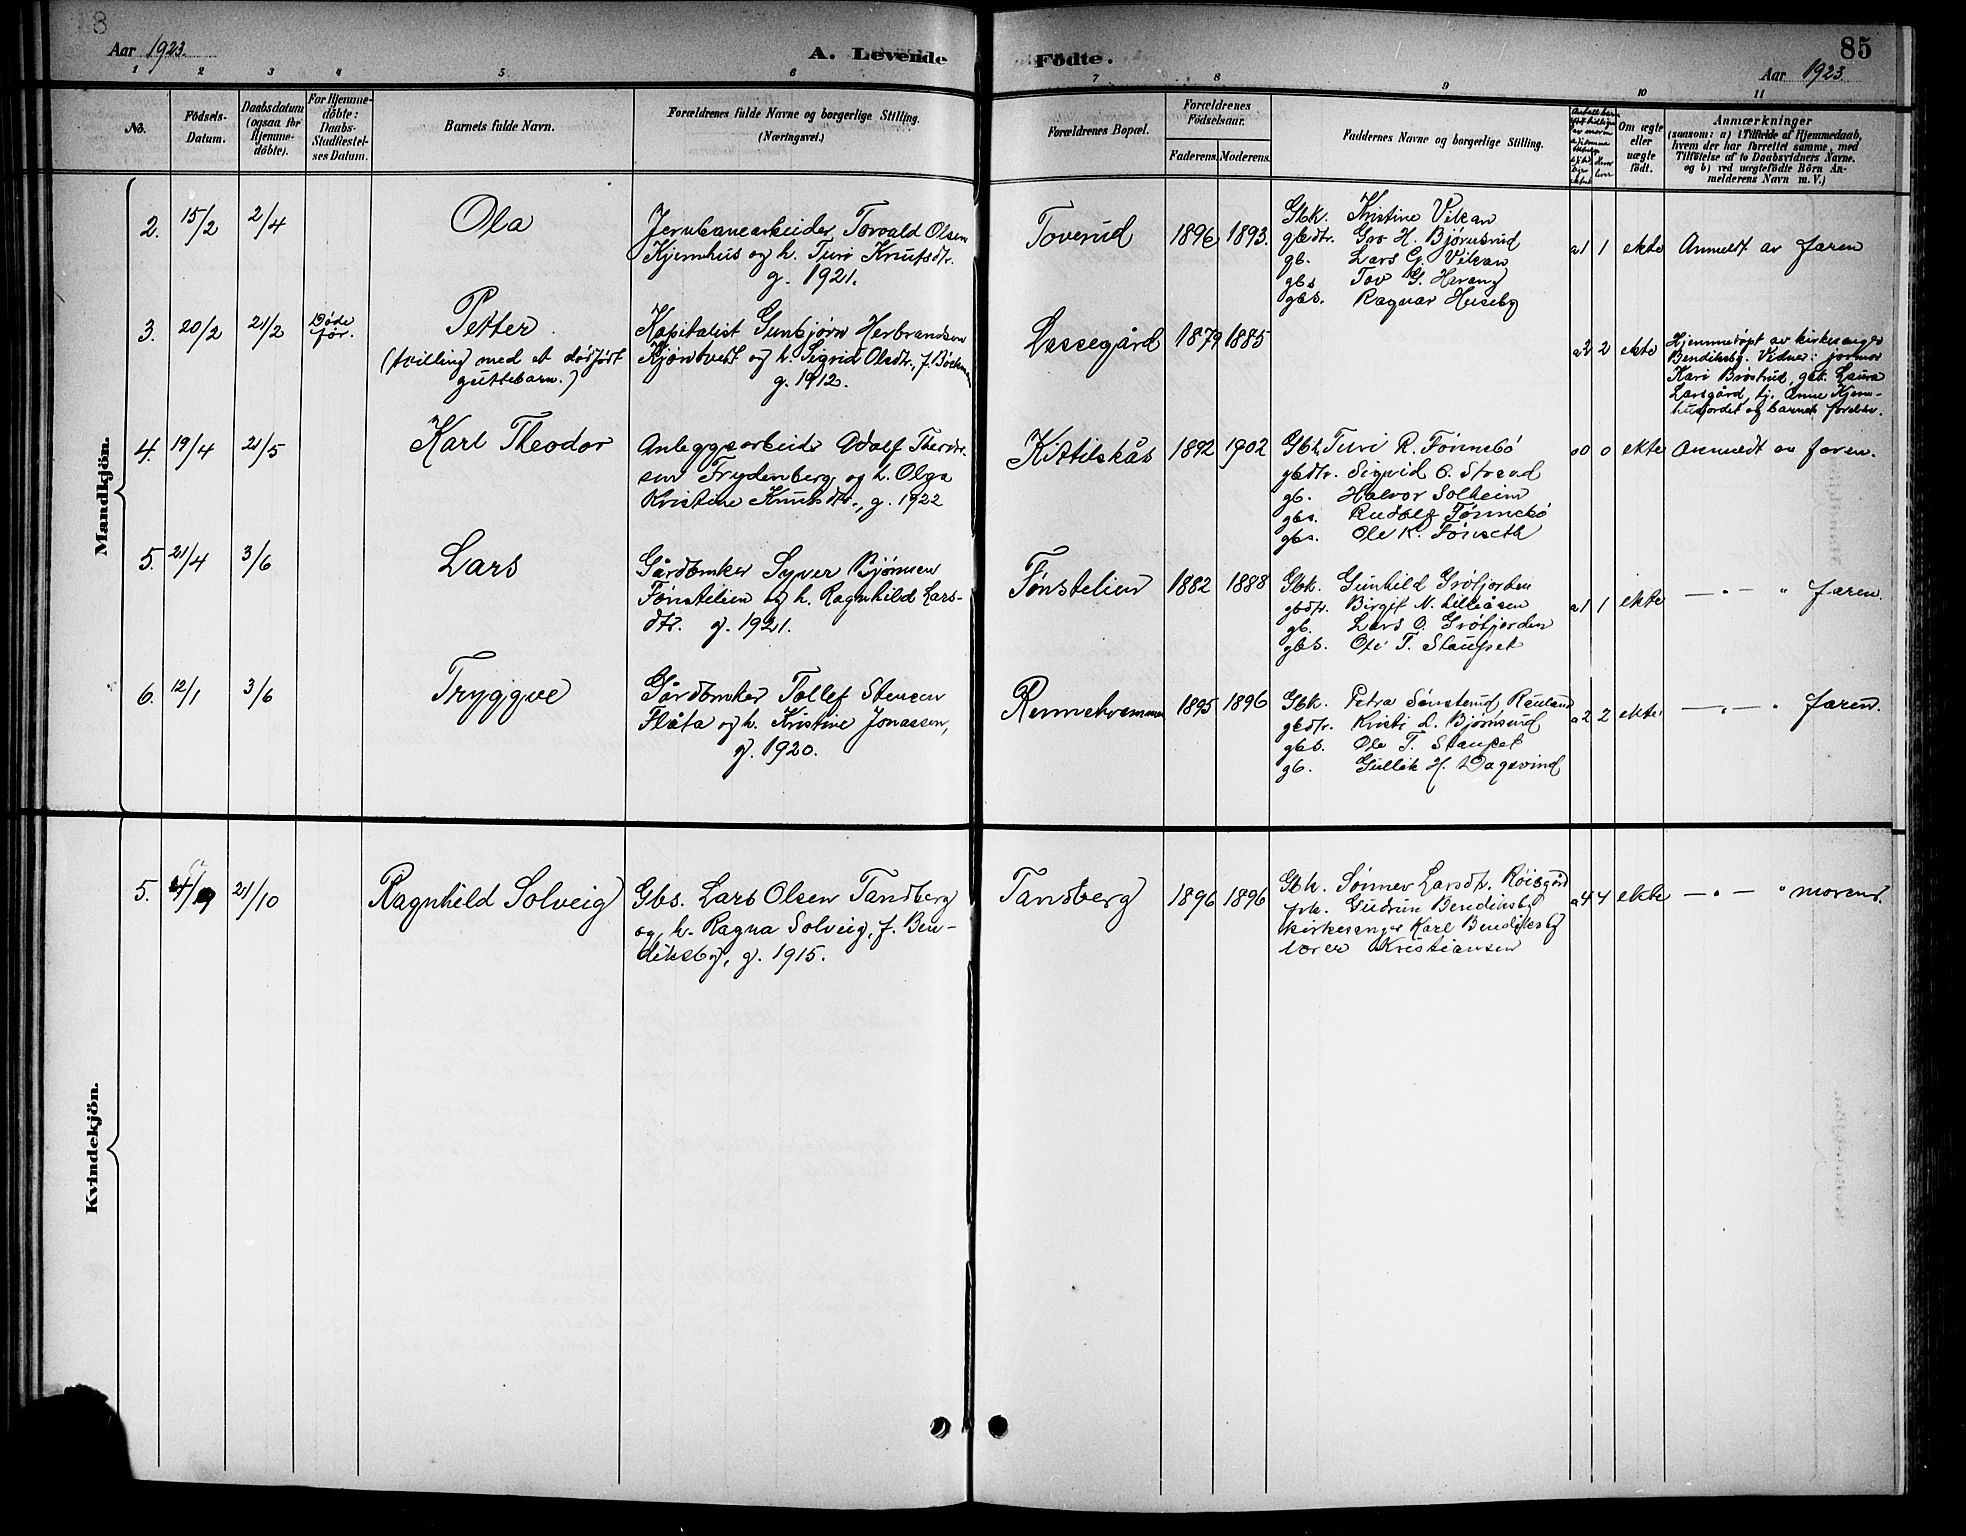 Aar 1923.
A. Levende Födte.
85
Aar 1923.
1 2 3 4 5 6 7 8 9 10 11
No.
Födsels-
Datum.
Daabsdatum
(ogsaa for
Hjemme-
döbte).
For Hjemme-
döbte:
Daabs-
Stadfæstel-
ses Datum.
Barnets fulde Navn.
Forældrenes fulde Navne og borgerlige Stilling.
(Næringsvei.)
Forældrenes Bopæl.
Forældrenes
Födselsaar.
Faderens. Moderens.
Faddernes Navne og borgerlige Stilling.
Om ægte
eller
uægte
födt.
Anmærkninger
(saasom: a) i Tilfælde af Hjemmedaab,
hvem der har forrettet samme, med
Tilföielse af to Daabsvidners Navne.
og b) ved uægtefödte Börn An-
melderens Navn m. V.)
Mandkjön.
2. 15/2 2/4 Ola
Jernbanearbeider Torvald Olsen
Kjemhus og h. Turi Knutsdtr.
g. 1921.
Toverud 1896 1893.
Gbk. Kristine Vikan
gbdtr. Gro H. Bjørnsrud
gb. Lars G. Vikan
gbs Tov G. Haraug
gbs. Ragnar Huseby
a1 1 ekte Anmeldt av faren
3. 20/2 21/2 Døde
før.
Petter
(tvilling med et dødfødt
guttebarn.)
Kapitalist Gunbjørn Herbrandsen
Kjøntvett og h. Sigrid Olsdtr., f. Børkman
g. 1912.
Lassegård 1879 1885
a2 2 ekte
Hjemmedøpt av kirkesanger
Bendiksby. Vidner: jormor
Kari Brøstrud, gbk. Laura
Larsgård, tj. Anne Kjem-
husjordet og barnets foreldre.
4. 19/4 21/5 Karl Theodor
Anleggsarbeider Adolf Theodor-
sen Frydenberg og h. Olga
Kristine Knutsdtr., g. 1922
Kittilskås 1892 1902
Gbk. Turi R. Fønnebø
gbdtr. Sigrid O. Strand
gb. Halvor Solheim
gbs. Rudolf Fønnebø
gbs. Ole K. Fønseth
a0 0 ekte Anmeldt av faren.
5. 21/4 3/6 Lars
Gårdbruker Syver Bjørnsen
Fønstelien og h. Ragnhild Lars-
dtr. g. 1921.
Fønstelien 1882 1888
Gbk. Gunhild Grøfjorden
gbdtr. Birgit N. Lilleåsen
gb. Lars O. Grøfjorden
gbs. Ole T. Staupet
a1 1 ekte — " — " faren.
6. 12/1 3/6 Tryggve
Gårdbruker Tollef Stensen
Flåta og h. Kristine Jonassen,
g. 1920.
Rennehvammen 1895 1896
Gbk. Petra Sønsterud Rauland
gbdtr. Kristi L. Bjørnsrud
gbs. Ole T. Staupet
gb. Gullik H. Dagsvind
a2 2 ekte — " — " faren.
Kvindekjön.
5. 4/9 21/10 Ragnhild Solveig
Gbs. Lars Olsen Tandberg
og h. Ragna Solveig, f. Ben-
diksby, g. 1915.
Tandberg 1896 1896
Gbk. Sønnev Larsdtr. Roisgård
frk. Gudrun Bendiksby
kirkesanger Karl Bendiksby
lærer Kristiansen
a4 4 ekte — " — " moren.